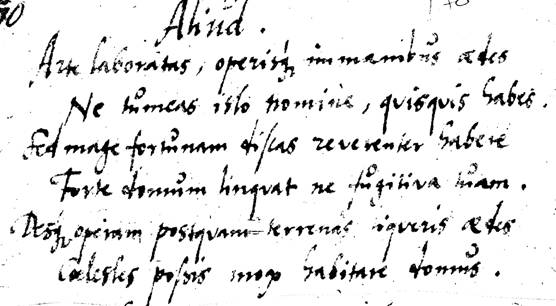 Aliud.
Arte laboratas, operisq; immanibus ædes
Ne tumeas isto nomine, quisquis habes.
Sed mage fortunam discas reverenter habere
Forte domum linquat ne fugitiva tuam.
Desq; operam postquam terrenas ædes
Cœlestes possis mox habitare domus.